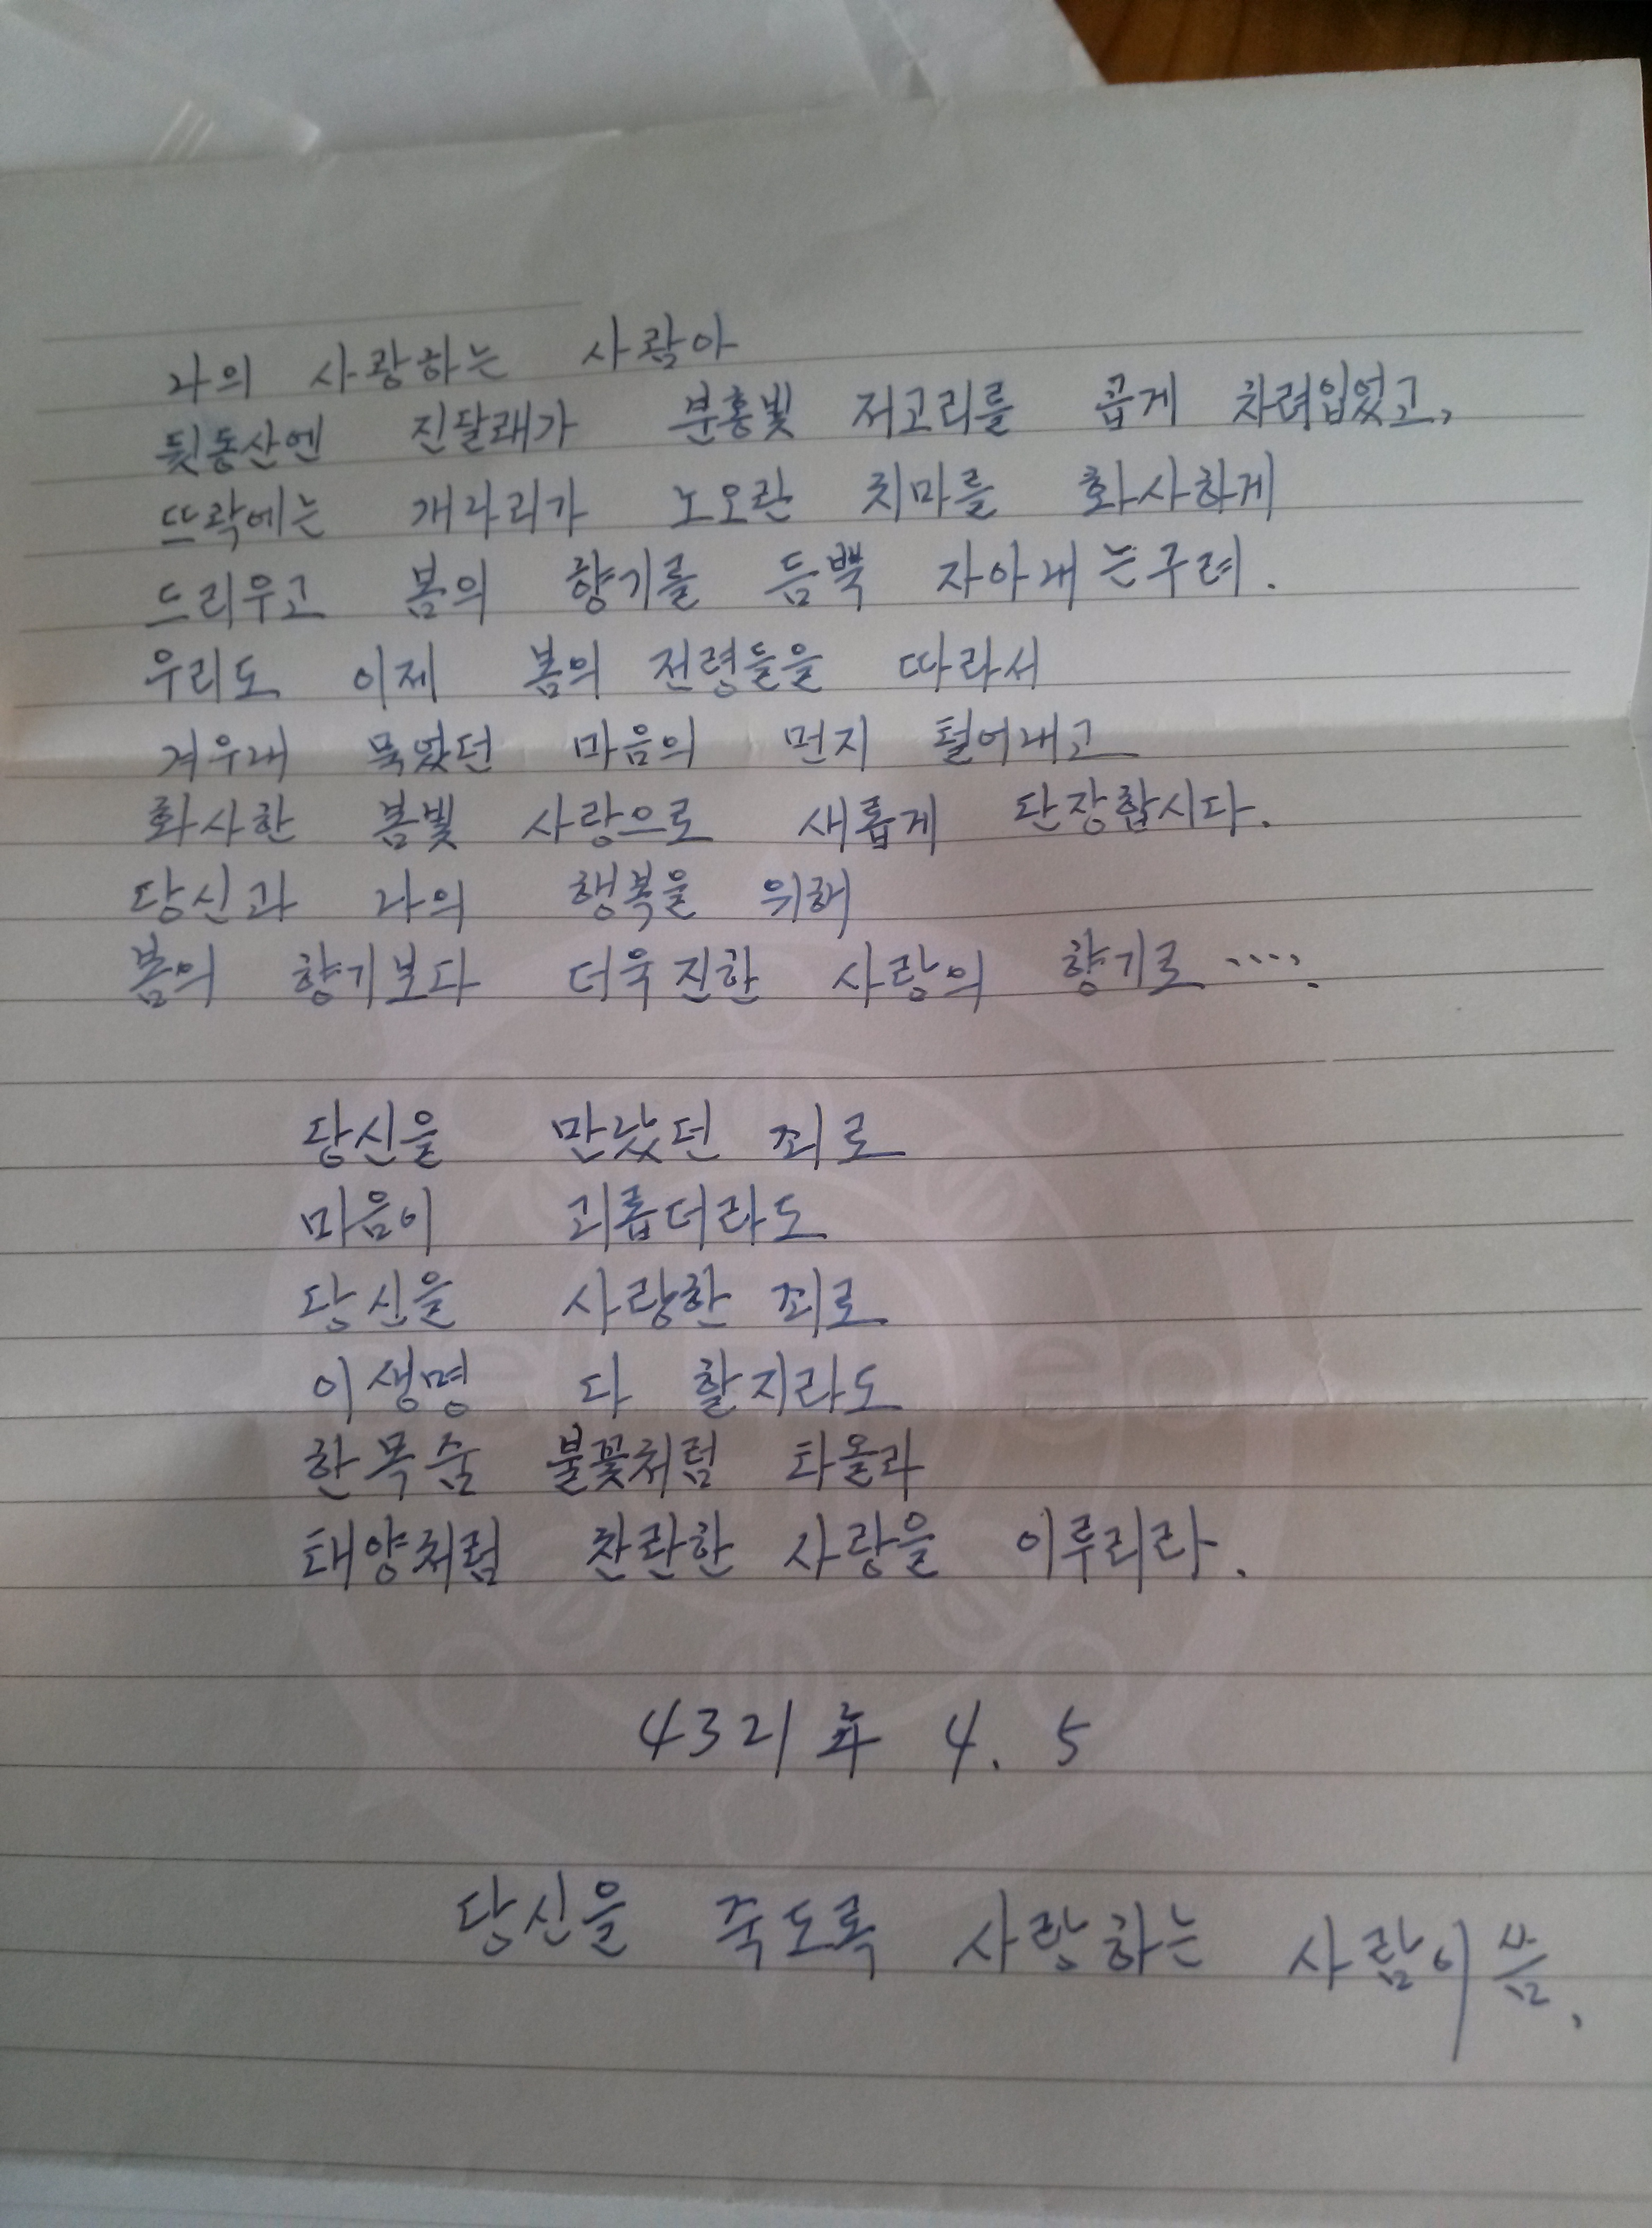 나의 사랑하는 사람아
뒷동산엔 진달래가 분홍빛 저고리를 곱게 차려입었고,
뜨락에는 개나리가 노오란 치마를 화사하게
드리우고 봄의 향기를 듬뿍 자아내는구려.
우리도 이제 봄의 전령들을 따라서
겨우내 묵었던 마음의 먼지 털어내고
화사한 봄빛 사랑으로 새롭게 단장합시다.
당신과 나의 행복을 위해
봄의 향기보다 더욱 진한 사랑의 향기로·····
당신을 만났던 죄로
마음이 괴롭더라도
당신을 사랑한 죄로
이생명 다 할지라도
한목숨 불꽃처럼 타올라
태양처럼 찬란한 사랑을 이루리라.
4321年 4. 5
당신을 죽도록 사랑하는 사람이 씀.